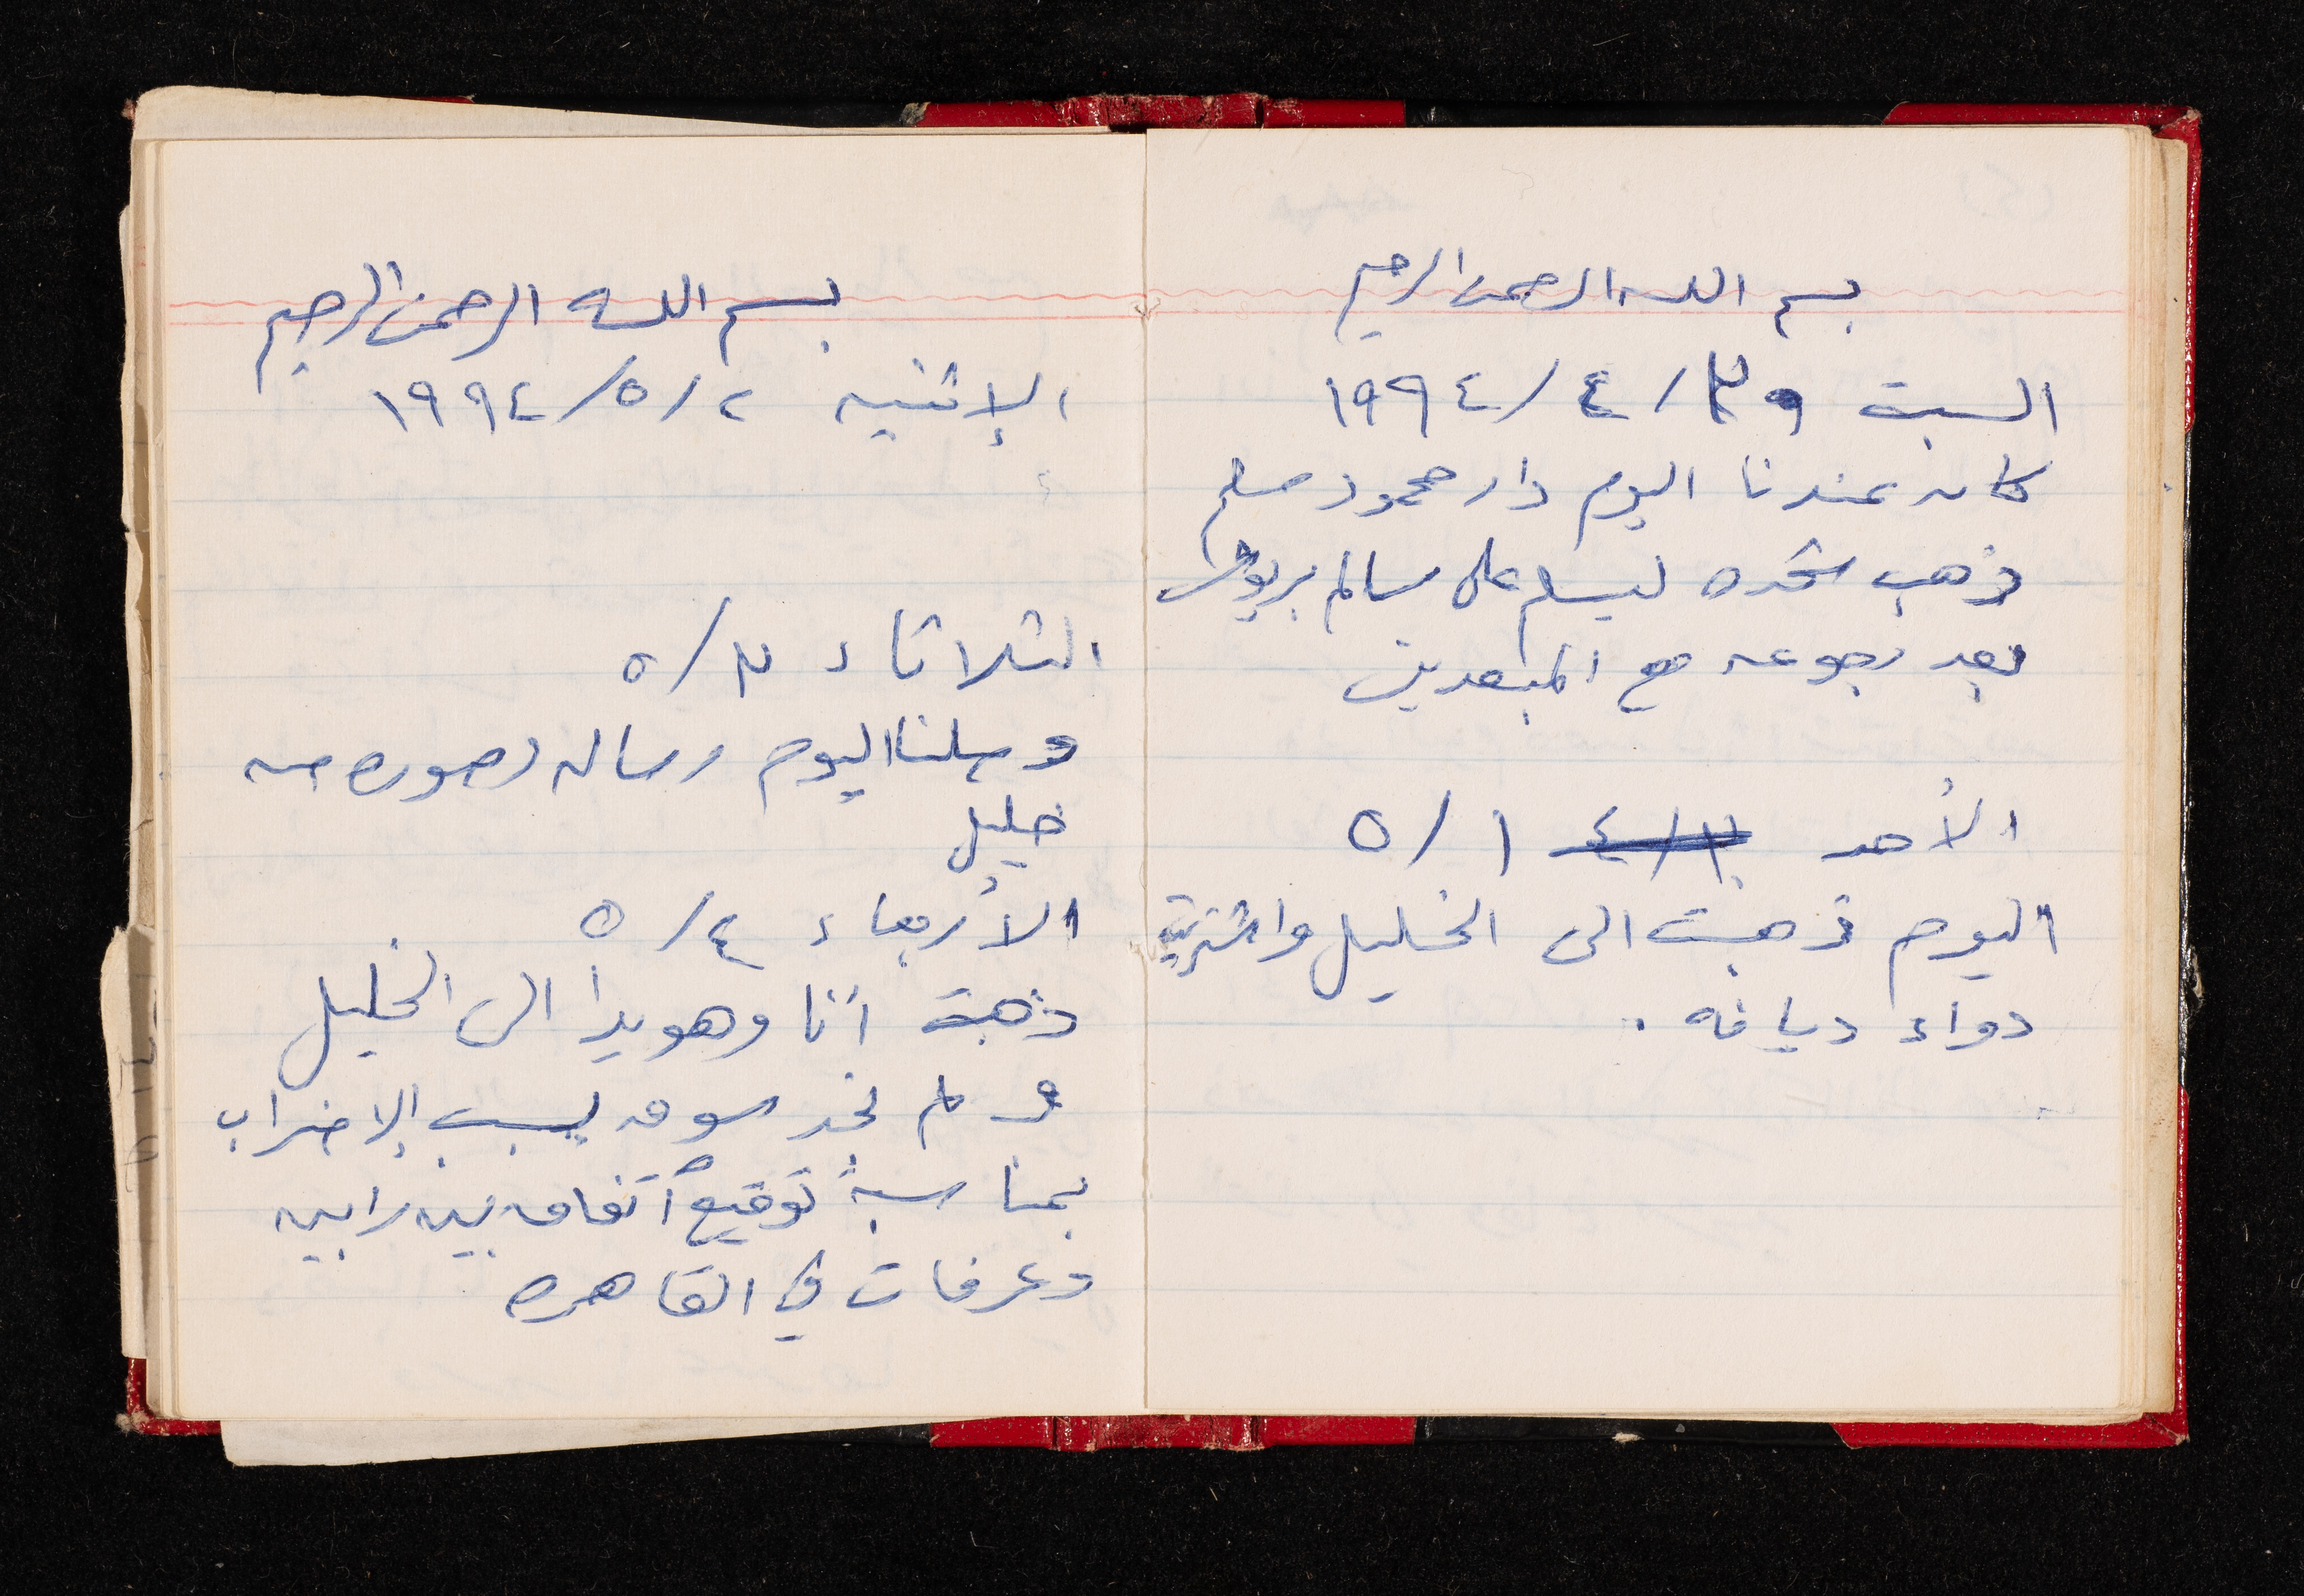 بسم الله الرحمن الرحيم
السبت ٣٠/٤/١٩٩٤
كان عندنا اليوم دار محمود مسلم
ذهب شحده ليسلم على سالم
بعد رجوعه مع المبعدين
الأحد ١/٥
اليوم ذهبت الى الخليل واشتريت
دواء ديانه .
بسم الله الرحمن الرحيم
الإثنين ٢/٥/١٩٩٤
الثلاثاء ٣/٥
وصلنا اليوم رساله وصوره من
خليل
الأربعاء ٤/٥
ذهبت أنا وهويدا الى الخليل
و لم نجد سوق بسبب الإضراب
بمناسبة توقيع اتفاق بين رابين
وعرفات في القاهره